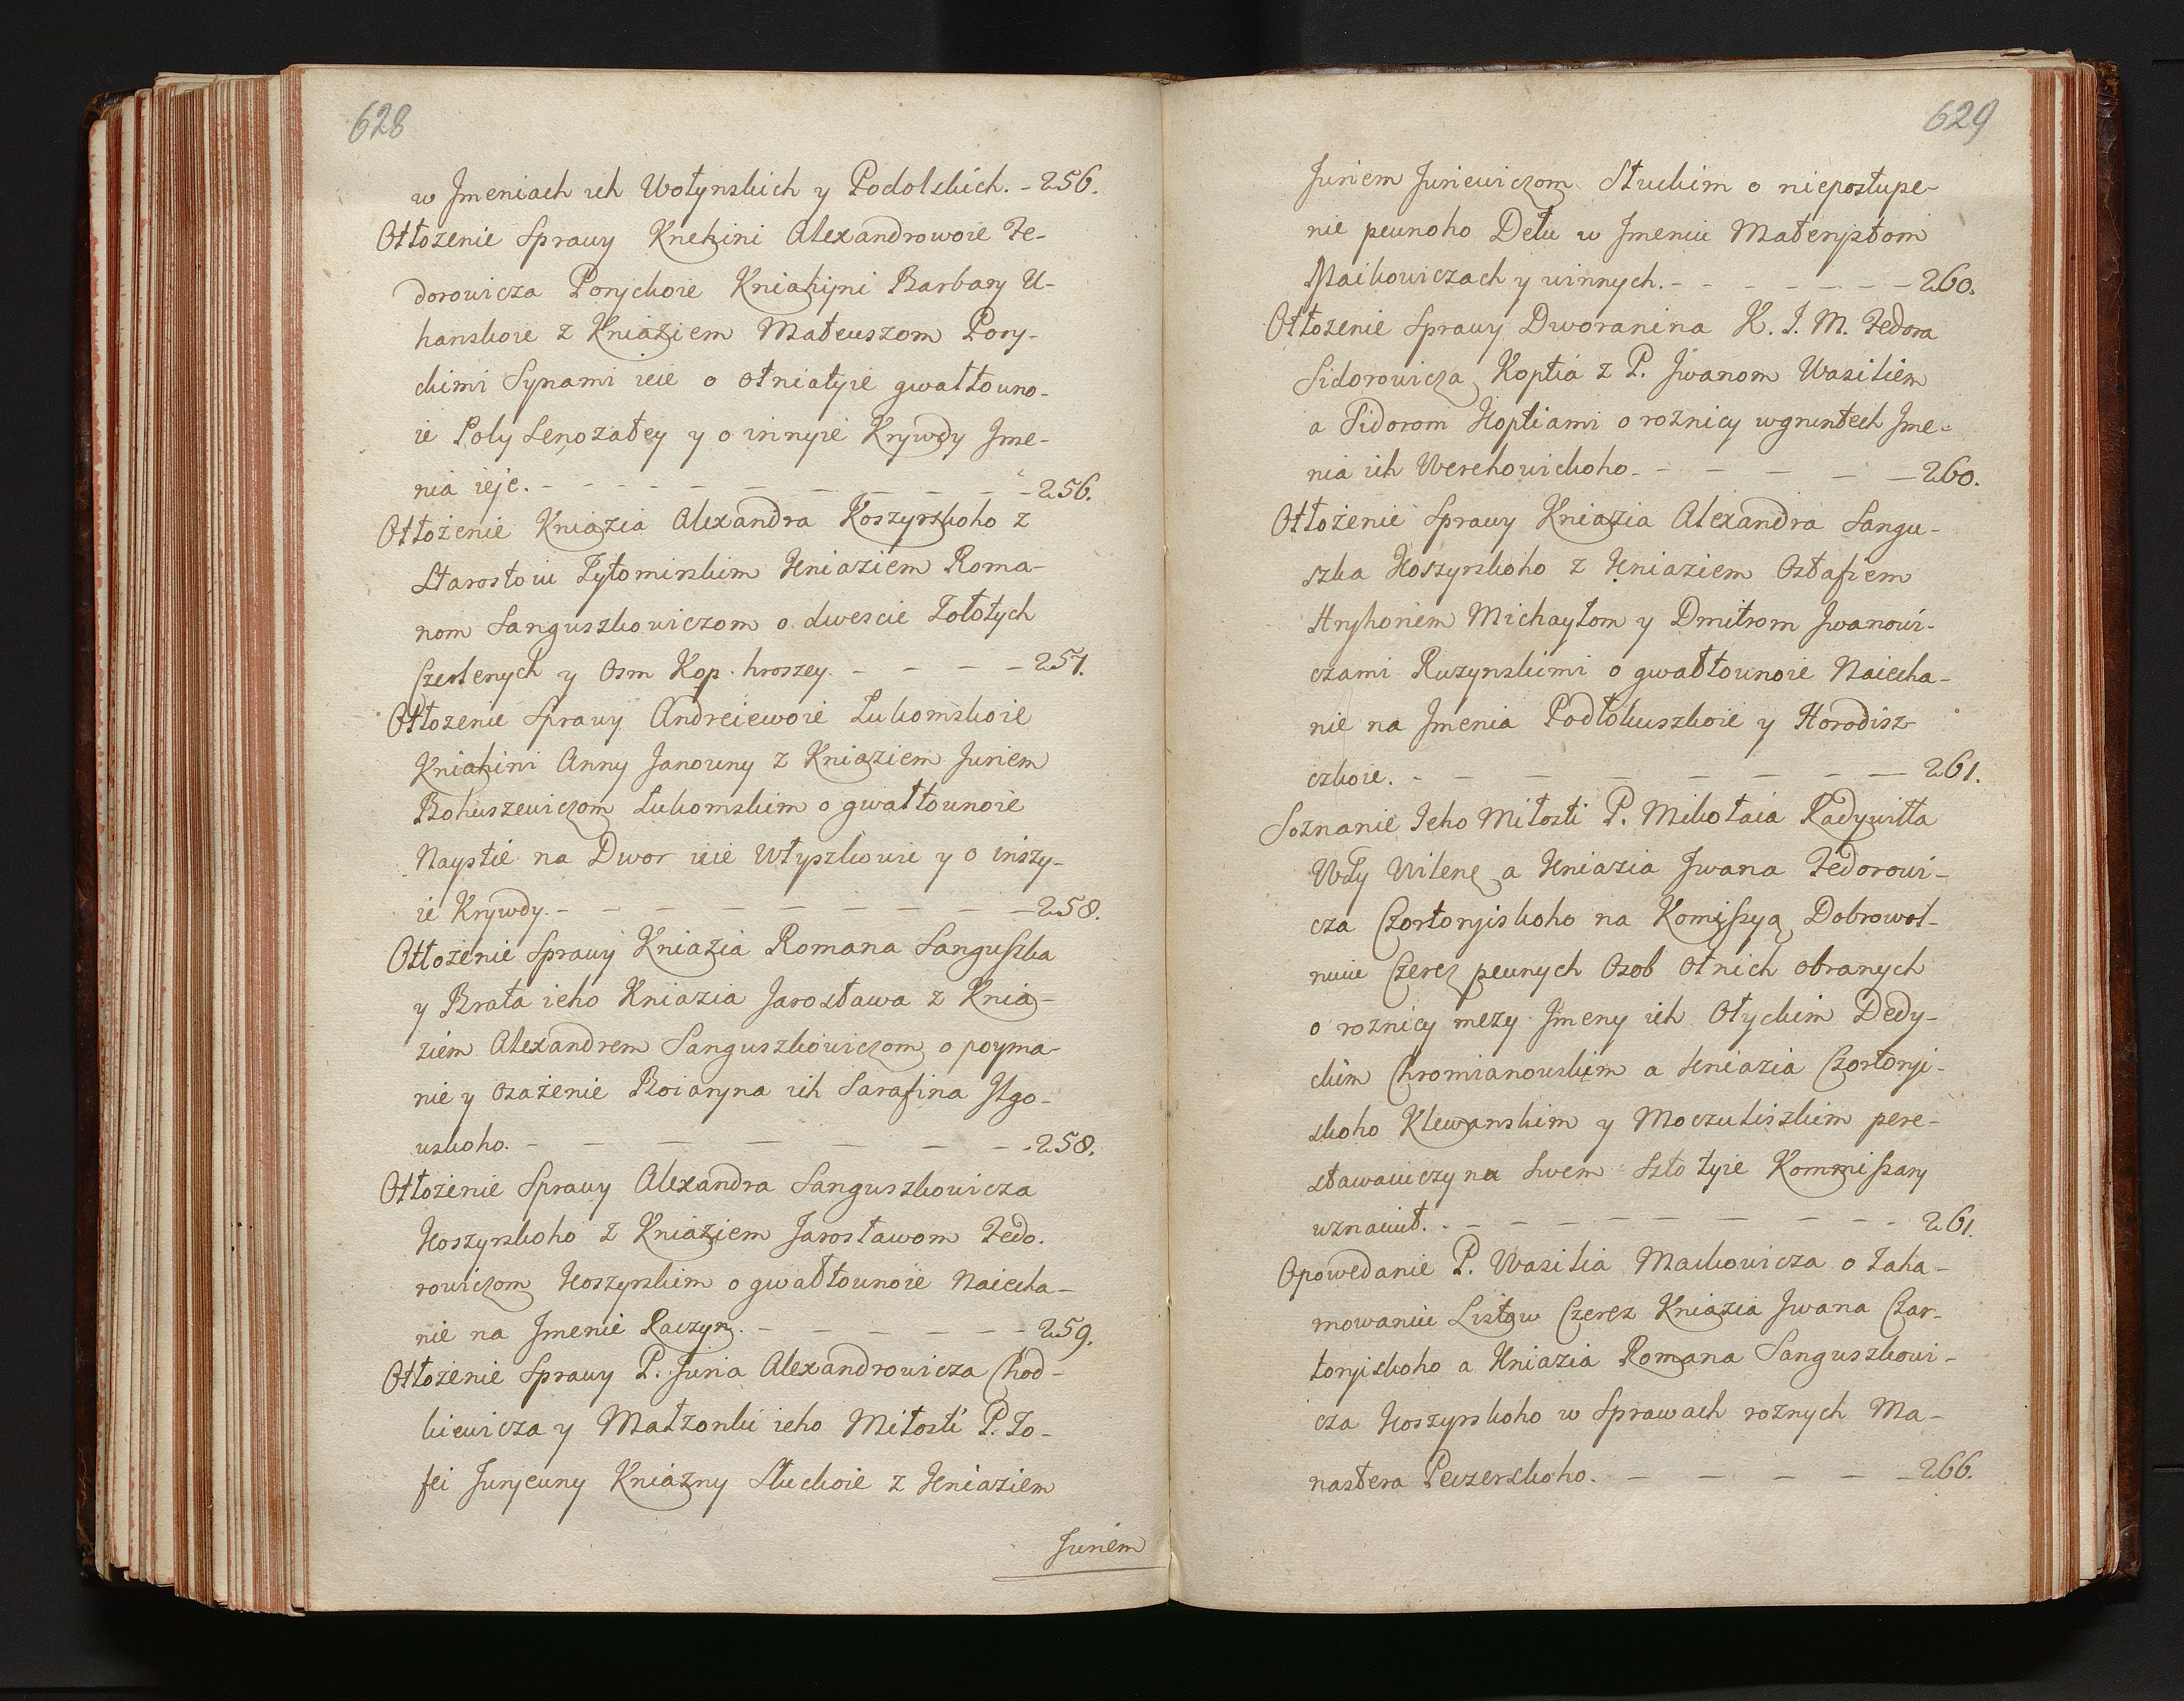 628
w Jmeniach ich Wołynskich y Podolskich. - 256.
Otłożenie Sprawy Knehini Alexandrowoie Fe-
dorowicza Poryckoie Kniahyni Barbary U-
hanskoie z Kniaziem Mateuszom Pory-
ckimi Synami ieie o otniatyie gwałtowno-
ie Poly Senozatey y o innyie Krywdy Jme-
nia ieje. - - - - - - - - - - 256.
Otłożenie Kniazia Alexandra Koszyrskoho z
Starostoiu Żytomirskim Kniaziem Roma-
nom Sanguszkowiczom o dwescie Zołotych
Czerlenych y Osm Kop. hroszey. - - - - 257.
Otłożenie Sprawy Andreiewoie Lukomskoie
Kniahini Anny Janowny z Kniaziem Juriem
Bohuszewiczom Lukomskim o gwałtownoie
Naystie na Dwor ieie Włyszkowie y o inszy-
ie Krywdy. - - - - - - - - - 258.
Otłożenie Sprawy Kniazia Romana Sanguszka
y Brata ieho Kniazia Jarosława z Knia-
ziem Alexandrem Sanguszkowiczom o poyma-
nie y Osażenie Boiaryna ich Sarafina Jłgo-
wskoho. - - - - - - - 258.
Otłożenie Sprawy Alexandra Sanguszkowicza
Koszyrskoho z Kniaziem Jarosławom Fedo-
rowiczom Koszyrskim o gwałtownoie Naiecha-
nie na Jmenie Raczyn. - - - - - - 259.
Otłożenie Sprawy P. Juria Alexandrowicza Chod-
kiewicza y Małżonki ieho Miłosti P. Zo-
fei Jurjewny Kniażny Słuckoie z Kniaziem
Juriem
629
Juriem Juriewiczom Słuckim o niepostupe-
nie pewnoho Dełu w Jmeniu Materystom
Maikowiczach y winnych. - - - - - - - 260.
Otłożenie Sprawy Dworanina K. J. M. Fedora
Sidorowicza Koptia z P. Jwanom Wasiliem
a Sidorom Koptiami o roznicy w gruntech Jme-
nia ich Werchowickoho. - - - - - 260.
Otłożenie Sprawy Kniazia Alexandra Sangu-
szka Koszyrskoho z Kniaziem Ostafiem
Hryhoriem Michayłom y Dmitrom Jwanowi-
czami Ruzynskimi o gwałtownoie Naiecha-
nie na Jmenia Podłokuszkoie y Horodisz-
czkoie. - - - - - - - - 261.
Soznanie Jeho Miłosti P. Mikołaia Radywiłła
Wdy Wilenę a Kniazia Jwana Fedorowi-
cza Czortoryiskoho na Komissyą Dobrowol-
nuiu Czerez pewnych Osob ot nich obranych
o roznicy mezy Jmeny ich Ołyckim Dedy-
ckim Chromianowskim a Kniazia Czortoryi-
skoho Klewanskim y Moczuliszkim pere-
stawaiuczy na Swem Szto tyie Kommissary
uznaiut. - - - - - - - - - 261.
Opowedanie P. Wasilia Maikowicza o Zaha-
mowaniu Listow Czerez Kniazia Jwana Czar-
toryiskoho a Kniazia Romana Sanguszkowi-
cza Koszyrskoho w Sprawach roznych Ma-
nastera Peczerskoho. - - - - - 266.